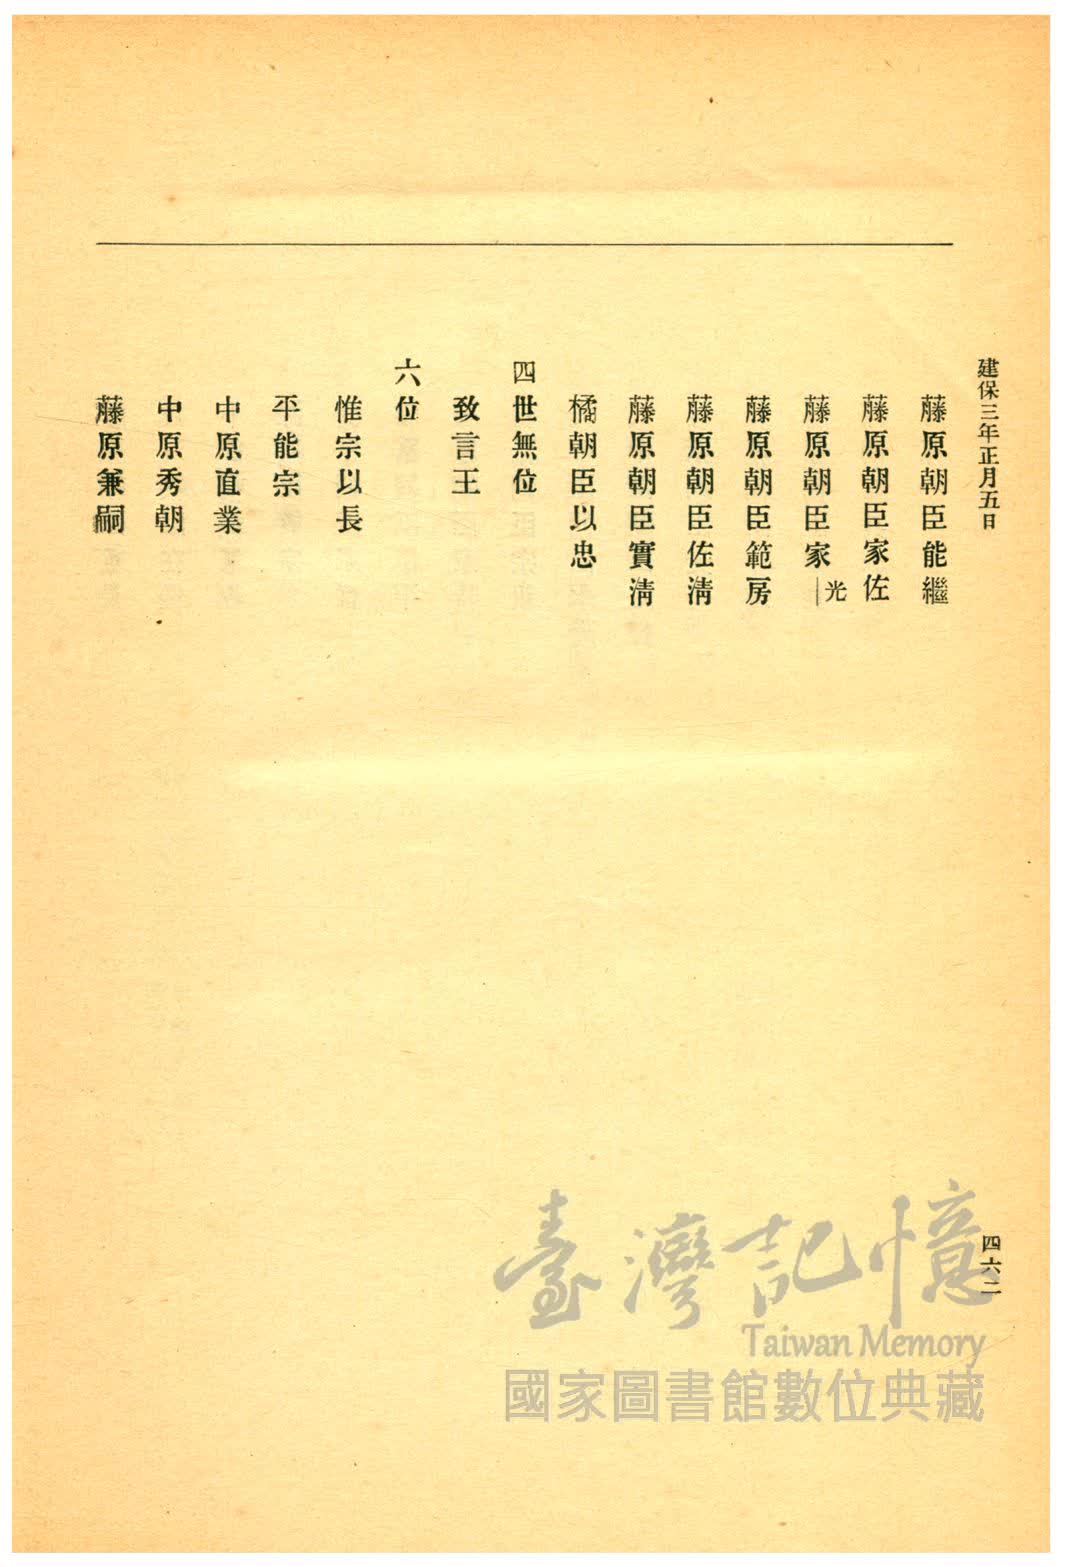 建保三年正月五日
藤原朝臣能繼
藤原朝臣家佐
藤原朝臣家｜光
藤原朝臣範房
藤原朝臣佐淸
藤原朝臣實淸
橘朝臣以忠
四世無位
致言王
六位
惟宗以長
平能宗
中原直業
中原秀朝
藤原兼嗣
四六二
臺灣記憶
Taiwan Memory
國家圖書館數位典藏